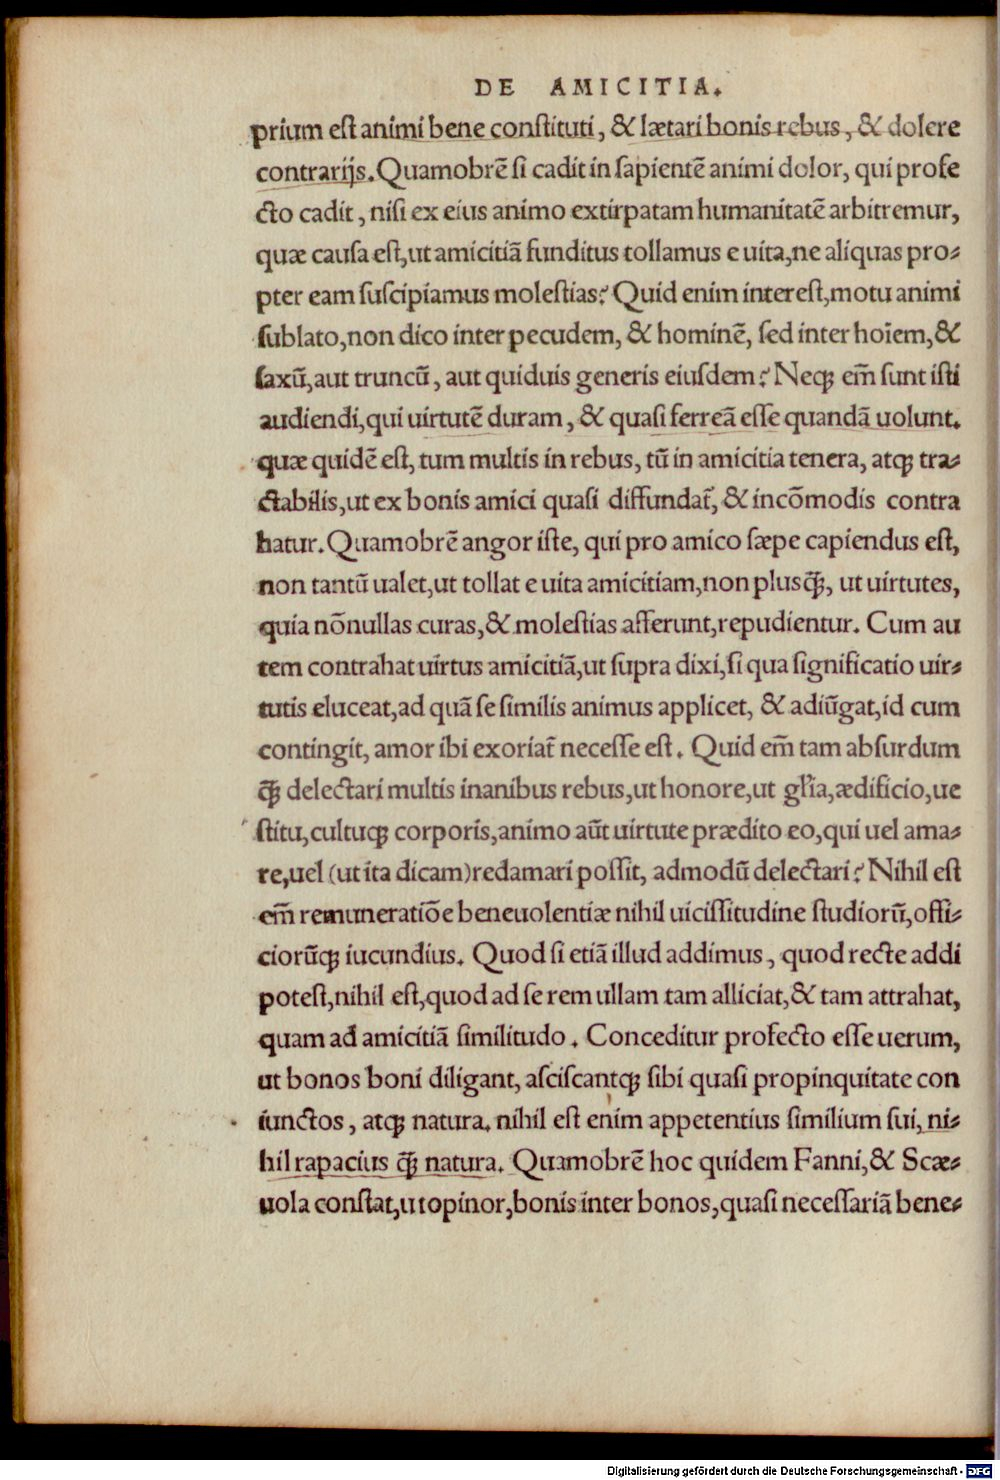 DE AMICITIA.
prium est animi bene constituti, & lætari bonis rebus, & dolere
contrarijs. Quamobrẽ si cadit in sapientẽ animi dolor, qui profe
cto cadit, nisi ex eius animo extirpatam humanitatẽ arbitremur,
quæ causa est, ut amicitiã funditus tollamus e uita, ne aliquas pro-
pter eam suscipiamus molestias? Quid enim interest, motu animi
sublato, non dico inter pecudem, & hominẽ, sed inter hoĩem, &
saxũ, aut truncũ, aut quiduis generis eiusdem? Neqꝫ em̃ sunt isti
audiendi, qui uirtutẽ duram, & quasi ferreã esse quandã uolunt.
quæ quidẽ est, tum multis in rebus, tũ in amicitia tenera, atqꝫ tra-
ctabilis, ut ex bonis amici quasi diffundat̃, & incõmodis contra
hatur. Quamobrẽ angor iste, qui pro amico sæpe capiendus est,
non tantũ ualet, ut tollat e uita amicitiam, non plusq̃ꝫ, ut uirtutes,
quia nõnullas curas, & molestias afferunt, repudientur. Cum au
tem contrahat uirtus amicitiã, ut supra dixi, si qua significatio uir-
tutis eluceat, ad quã se similis animus applicet, & adiũgat, id cum
contingit, amor ibi exoriat̃ necesse est. Quid em̃ tam absurdum
q̃ꝫ delectari multis inanibus rebus, ut honore, ut gl̃ia, ædificio, ue
stitu, cultuqꝫ corporis, animo aũt uirtute prædito eo, qui uel ama-
re, uel (ut ita dicam) redamari possit, admodũ delectari? Nihil est
em̃ remuneratiõe beneuolentiæ nihil uicissitudine studiorũ, offi-
ciorũqꝫ iucundius. Quod si etiã illud addimus, quod recte addi
potest, nihil est, quod ad se rem ullam tam alliciat, & tam attrahat,
quam ad amicitiã similitudo. Conceditur profecto esse uerum,
ut bonos boni diligant, asciscantqꝫ sibi quasi propinquitate con
iunctos, atqꝫ natura. nihil est enim appetentius similium sui, ni-
hil rapacius q̃ꝫ natura. Quamobrẽ hoc quidem Fanni, & Scæ-
uola constat, ut opinor, bonis inter bonos, quasi necessariã bene-
Digitalisierung gefördert durch die Deutsche Forschungsgemeinschaft - DFG